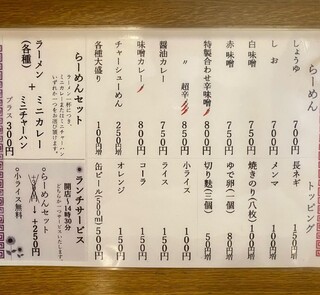 らーめん
しょうゆ 700円
しお 700円
白味噌 750円
赤味噌 750円
特製合わせ辛味噌 800円
〃 超辛 850円
醤油カレー 750円
味噌カレー 800円
チャーシューめん 250円増
各種大盛り 100円増
トッピング
長ネギ 150円
メンマ 100円
焼きのり(八枚) 100円
ゆで卵(一個) 80円
切り麩(三個) 50円
小ライス 100円
ライス 150円
コーラ 150円
オレンジ 150円
缶ビール(500ml) 500円
らーめんセット
ラーメン一杯につき、
ミニカレーまたはミニチャーハン
いずれか一つをお選び頂けます。
ラーメン + ミニカレー
(各種) ミニチャーハン
プラス 300円
ランチサービス
開店〜14時30分
どちらか一つサービスいたします。
○らーめんセット
→ +250円
○小ライス無料